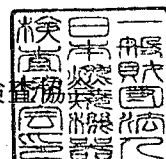 一般財団法人
日本燃焼機器
検査協会之印
査協